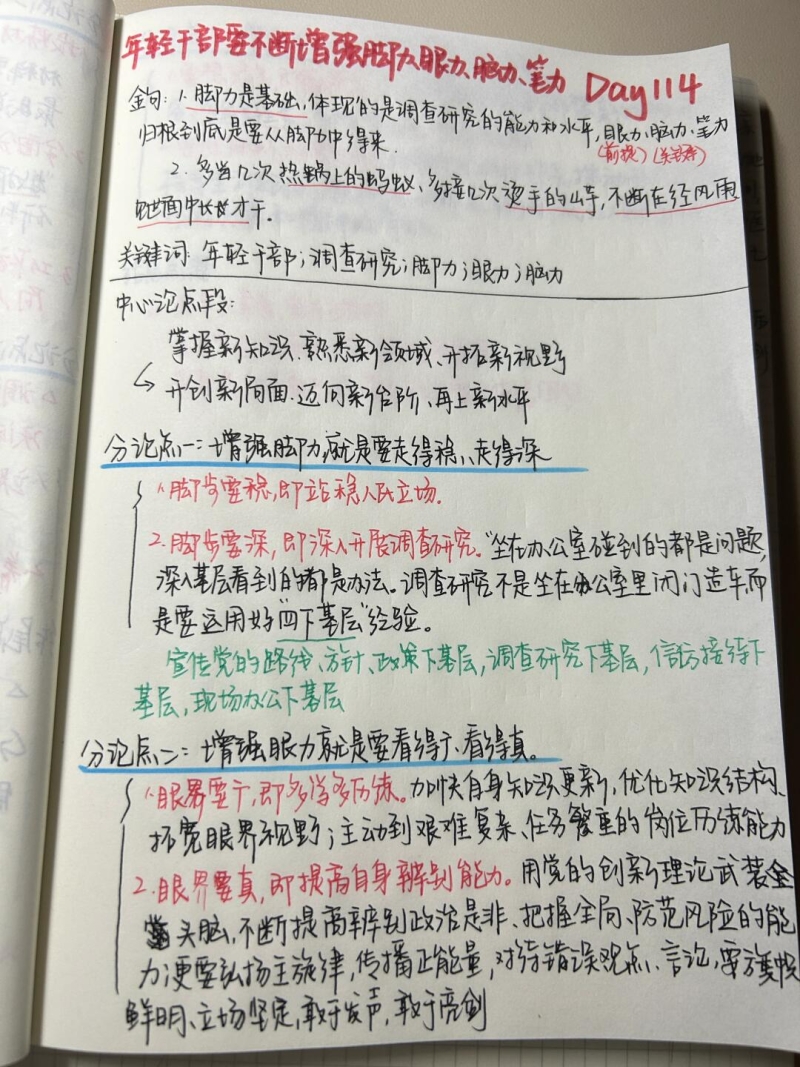 年轻干部要不断增强脚力、眼力、脑力、笔力 Day114
金句: 1.脚力是基础,体现的是调查研究的能力和水平,眼力、脑力、笔力
归根到底是要从脚力中得来.
(前提) (关键)
2.多当几次热锅上的蚂蚁、多接几次烫手的山芋,不断在经风雨
见世面中长才干。
关键词: 年轻干部;调查研究;脚力;眼力;脑力
中心论点段:
掌握新知识、熟悉新领域、开拓新视野
↳开创新局面、迈向新台阶、再上新水平
分论点一:增强脚力,就是要走得稳、走得深
1.脚步要稳,即站稳人民立场.
2.脚步要深,即深入开展调查研究。"坐在办公室碰到的都是问题,
深入基层看到的都是办法。调查研究不是坐在办公室里闭门造车,而
是要运用好"四下基层"经验。
宣传党的路线、方针、政策下基层,调查研究下基层,信访接待下
基层,现场办公下基层
分论点二:增强眼力就是要看得广、看得真。
1.眼界要广,即多学多历练。加快自身知识更新,优化知识结构、
拓宽眼界视野;主动到艰难复杂、任务繁重的岗位历练能力
2.眼界要真,即提高自身辨别能力。用党的创新理论武装全
头脑,不断提高辨别政治是非、把握全局、防范风险的能
力;更要弘扬主旋律,传播正能量,对待错误观点、言论,要旗帜
鲜明、立场坚定,敢于发声,敢于亮剑